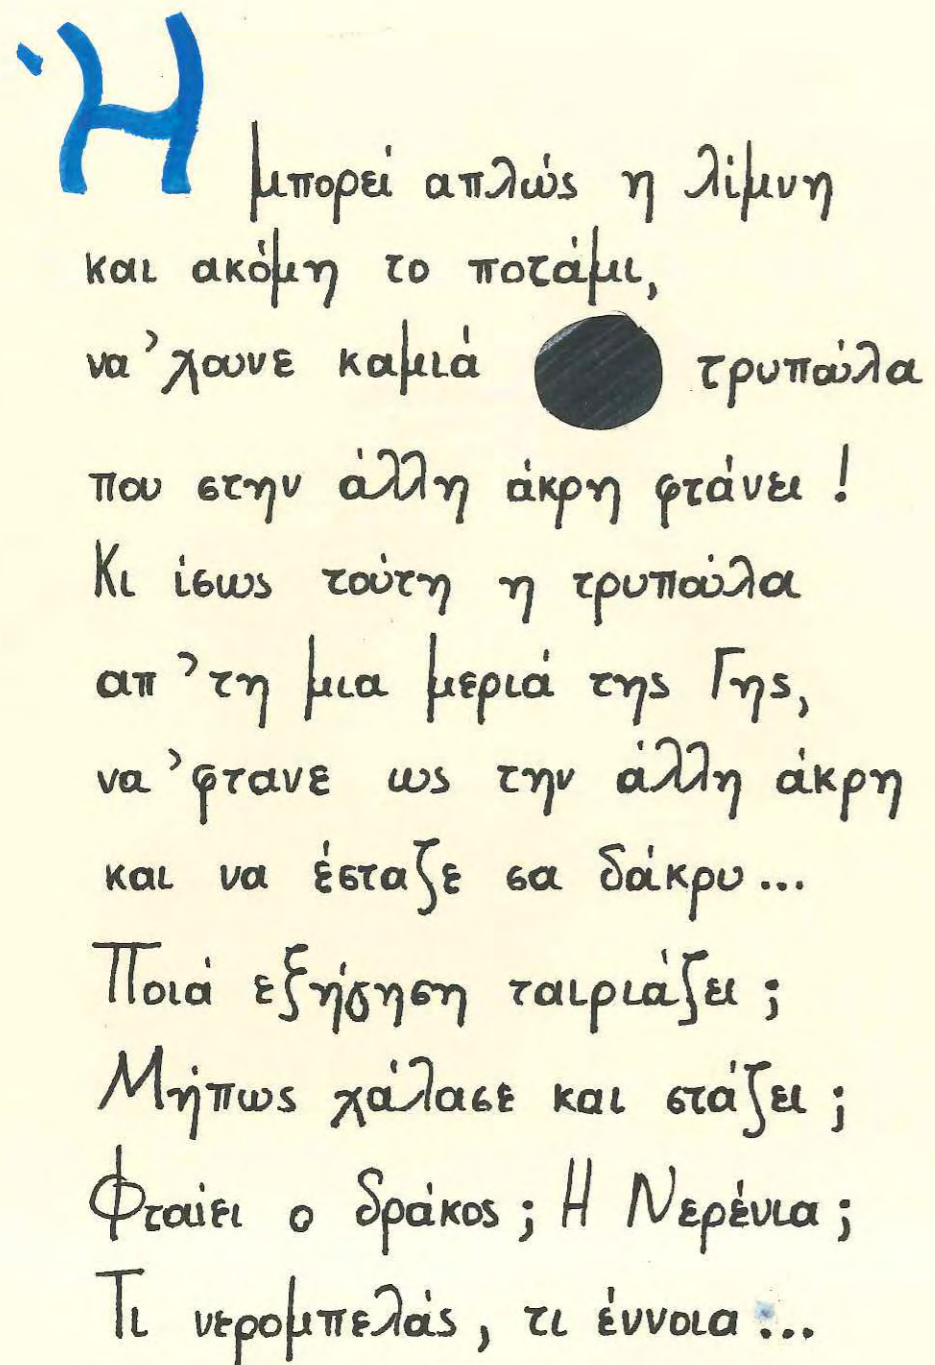 Ή μπορεί απλώς η λίμνη
και ακόμη το ποτάμι,
να 'χουνε καμιά τρυπούλα
που στην άλλη άκρη φτάνει!
Κι ίσως τούτη η τρυπούλα
απ 'τη μια μεριά της Γης,
να 'φτανε ως την άλλη άκρη
και να έσταζε σα δάκρυ...
Ποιά εξήγηση ταιριάζει;
Μήπως χάλασε και στάζει;
Φταίει ο δράκος; Η Νερένια;
Τι νερομπελάς, τι έννοια...